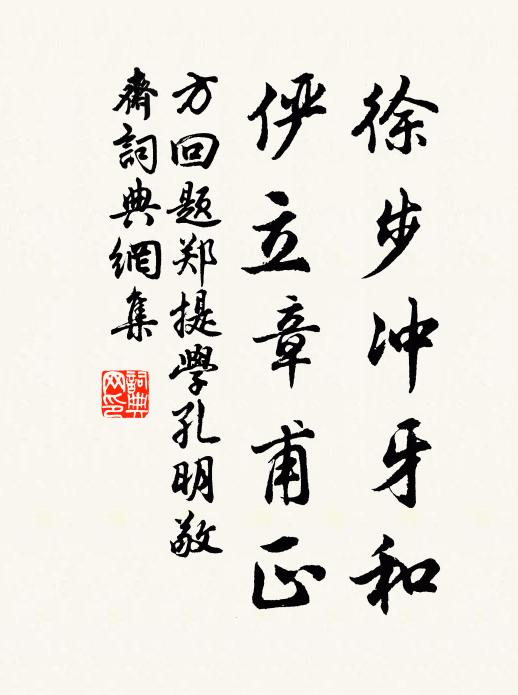 徐步冲牙和
俨立章甫正
方回题郑提学孔明敬
斋词典網集
詞典
网印